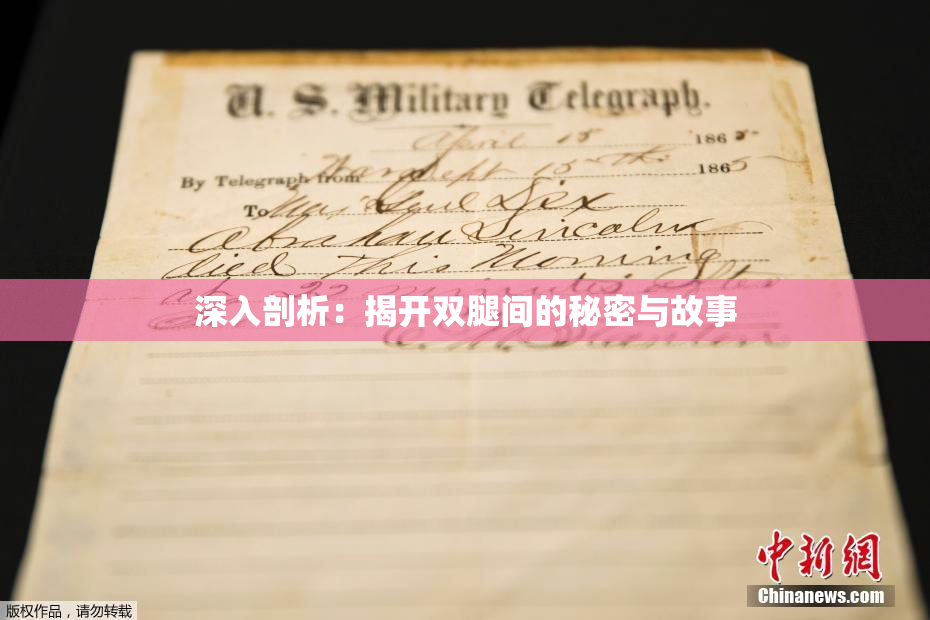 U. S. Military Telegraph.
April 15 1865
By Telegraph from War Dept 15th 1865
To Maj Genl Dix
Abraham Lincoln
died This Morning
at 22 minutes after
深入剖析：揭开双腿间的秘密与故事
E. M. Stanton
中新网
Chinanews.com
版权作品，请勿转载